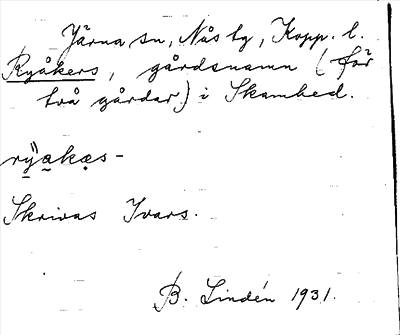 Järna sn, Nås tg, Kopp. l.
Ryåkers, gårdsnamn (för
två gårdar) i Skamhed.
rÿakas-
Skrivas Ivars.
B. Lindén 1931.